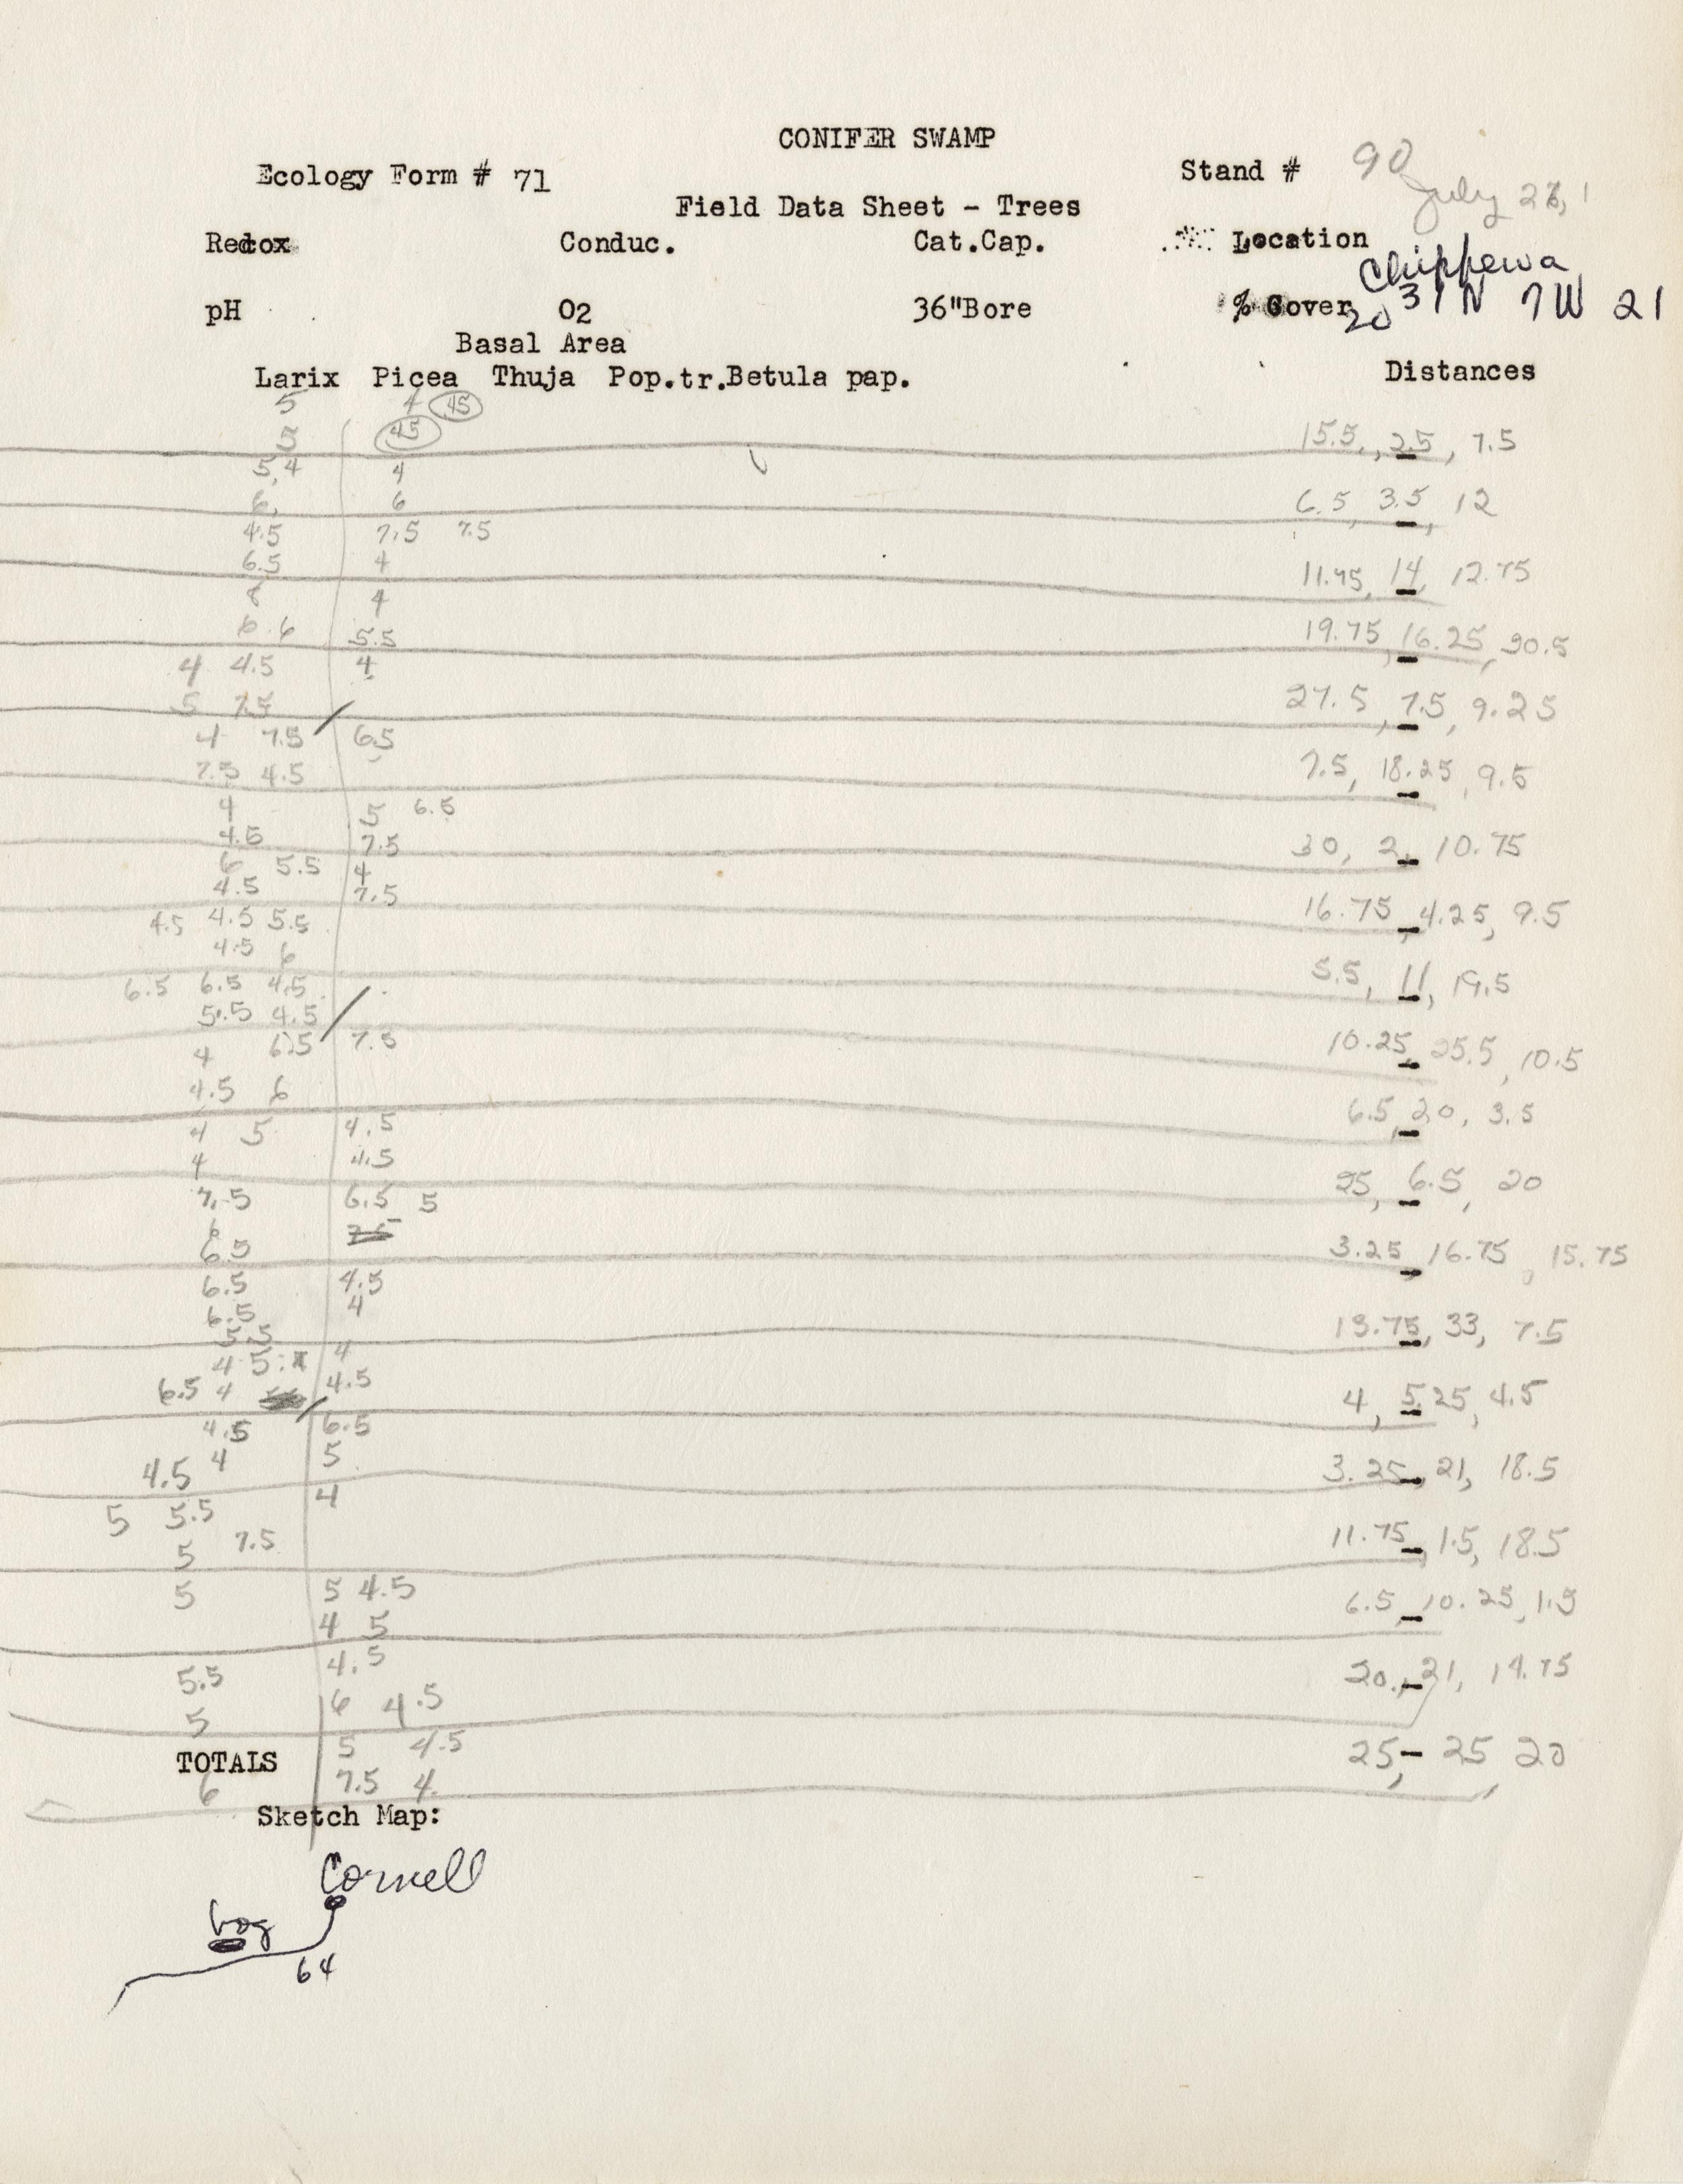 CONIFER SWAMP
Ecology Form # 71 Stand # 90
July 27, 1
Field Data Sheet - Trees
Redox Conduc. Cat.Cap. Location
Chippewa
pH O2 36"Bore % Cover 20 31N 7W 21
Basal Area
Larix Picea Thuja Pop.tr. Betula pap. Distances
5 4 45
5 45
15.5, 2.5, 7.5
5,4 4
6, 6
6.5, 3.5, 12
4.5 7.5 7.5
6.5 4
11.75, 14, 12.75
8 4
6 6 5.5
19.75, 16.25, 20.5
4 4.5 4
5 7.5
27.5, 7.5, 9.25
4 7.5 6.5
7.5 4.5
7.5, 18.25, 9.5
4 5 6.5
4.5 7.5
30, 2, 10.75
6 5.5 4
4.5 7.5
16.75, 4.25, 9.5
4.5 4.5 5.5
4.5 6
5.5, 11, 19.5
6.5 6.5 4.5
5.5 4.5
10.25, 25.5, 10.5
4 6.5 7.5
4.5 6
6.5, 20, 3.5
4 5 4.5
4 4.5
25, 6.5, 20
7.5 6.5 5
6
6.5
3.25, 16.75, 15.75
6.5 4.5
6.5 4
5.5
13.75, 33, 7.5
4 5 4
6.5 4 4.5
4, 5.25, 4.5
4.5 6.5
4.5 4 5
3.25, 21, 18.5
5 5.5 4
5 7.5
11.75, 1.5, 18.5
5 5 4.5
4 5
6.5, 10.25, 1.5
5.5 4.5
5 6 4.5
20, 21, 14.75
5 4.5
TOTALS
25, 25, 20
6 7.5 4
Sketch Map:
Cornell
bog
64